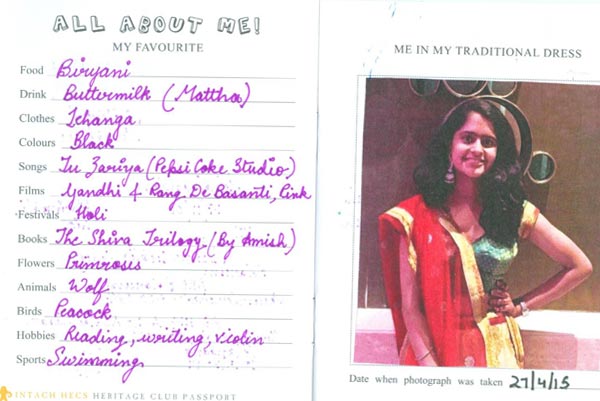 ALL ABOUT ME!
MY FAVOURITE
Food Biryani
Drink Buttermilk (Mattha)
Clothes Lehanga
Colours Black
Songs Tu Zariya (Pepsi Coke Studio)
Films Gandhi & Rang De Basanti, Pink
Festivals Holi
Books The Shiva Trilogy (By Amish)
Flowers Primroses
Animals Wolf
Birds Peacock
Hobbies Reading, writing, violin
Sports Swimming
INTACH HECS HERITAGE CLUB PASSPORT
ME IN MY TRADITIONAL DRESS
Date when photograph was taken 27/4/15